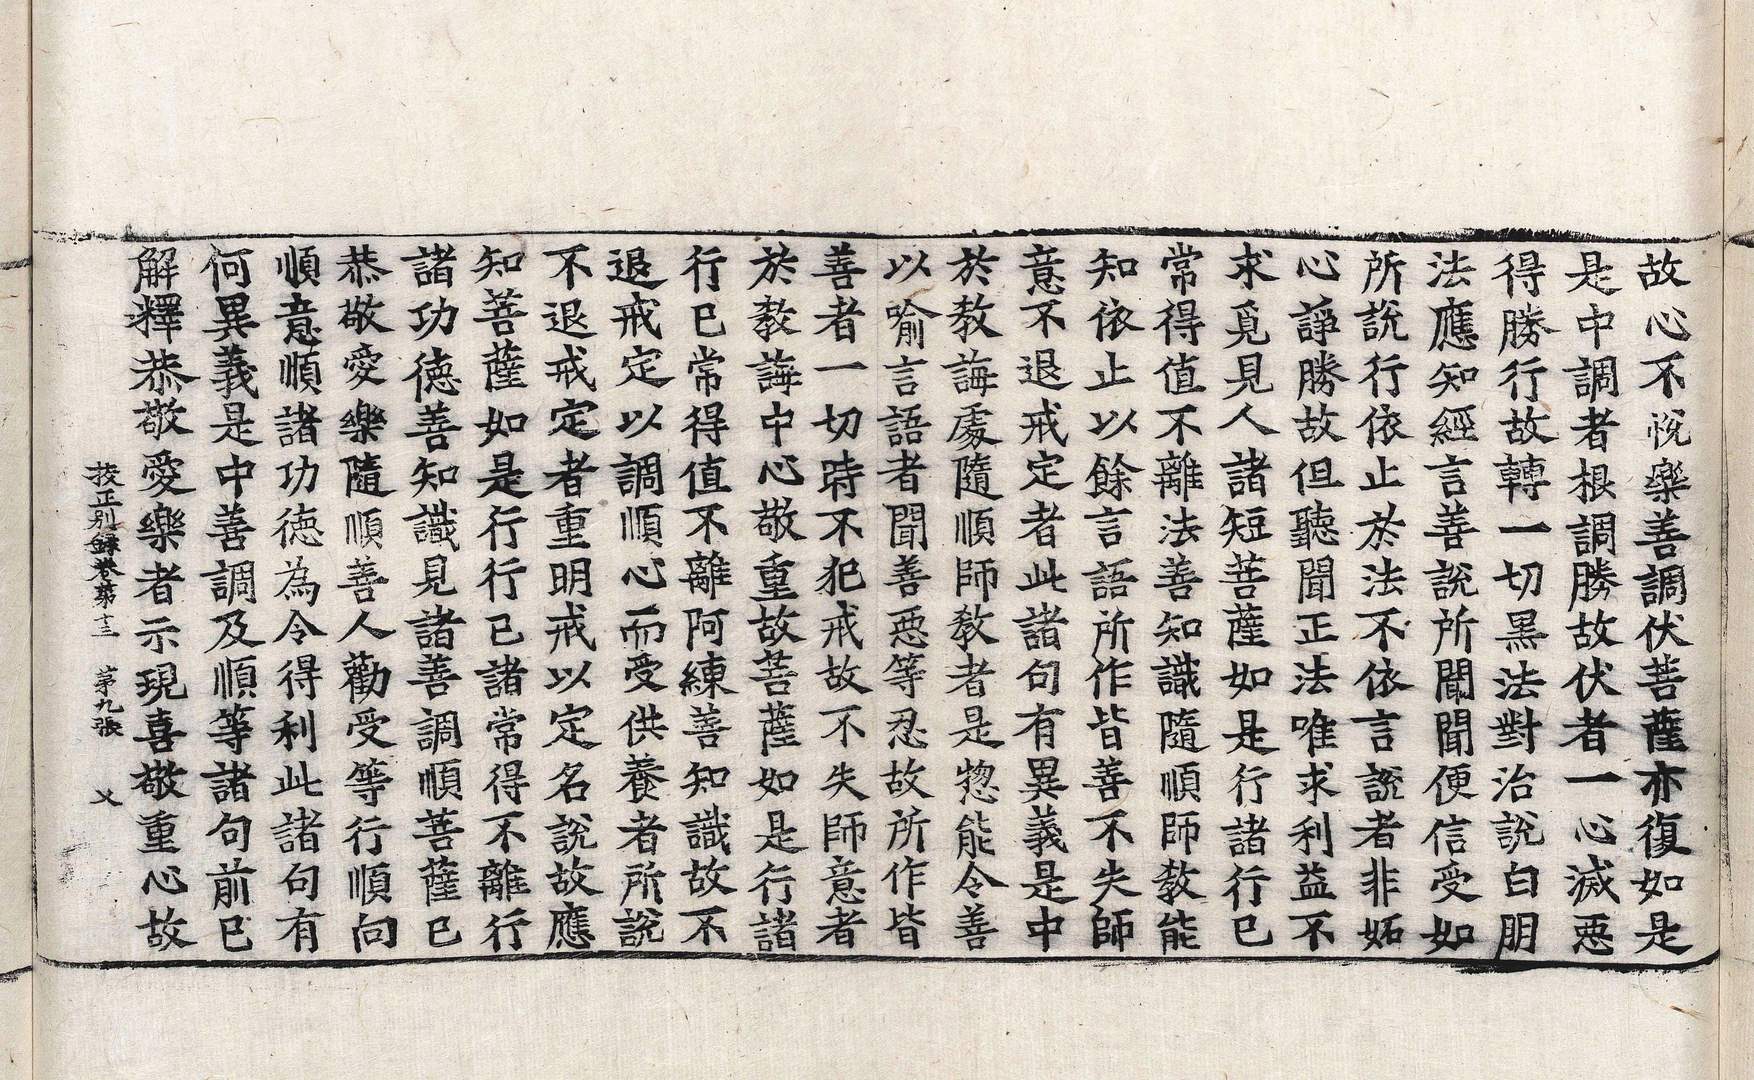 故心不悅樂善調伏菩薩亦復如是
是中調者根調勝故伏者一心滅惡
得勝行故轉一切黑法對治說白朋
法應知經言善說所聞聞便信受如
所說行依止於法不依言說者非妬
心諍勝故但聽聞正法唯求利益不
求覓見人諸短菩薩如是行諸行已
常得值不離法善知識隨順師教能
知依止以餘言語所作皆善不失師
意不退戒定者此諸句有異義是中
於教誨處隨順師教者是惣能令善
以喻言語者聞善惡等忍故所作皆
善者一切時不犯戒故不失師意者
於教誨中心敬重故菩薩如是行諸
行已常得值不離阿練善知識故不
退戒定以調順心而受供養者所說
不退戒定者重明戒以定名說故應
知菩薩如是行行已諸常得不離行
諸功德善知識見諸善調順菩薩已
恭敬愛樂隨順善人勸受等行順向
順意順諸功德為令得利此諸句有
何異義是中善調及順等諸句前已
解釋恭敬愛樂者示現喜敬重心故
挍正別錄卷第十三　第九張　乂